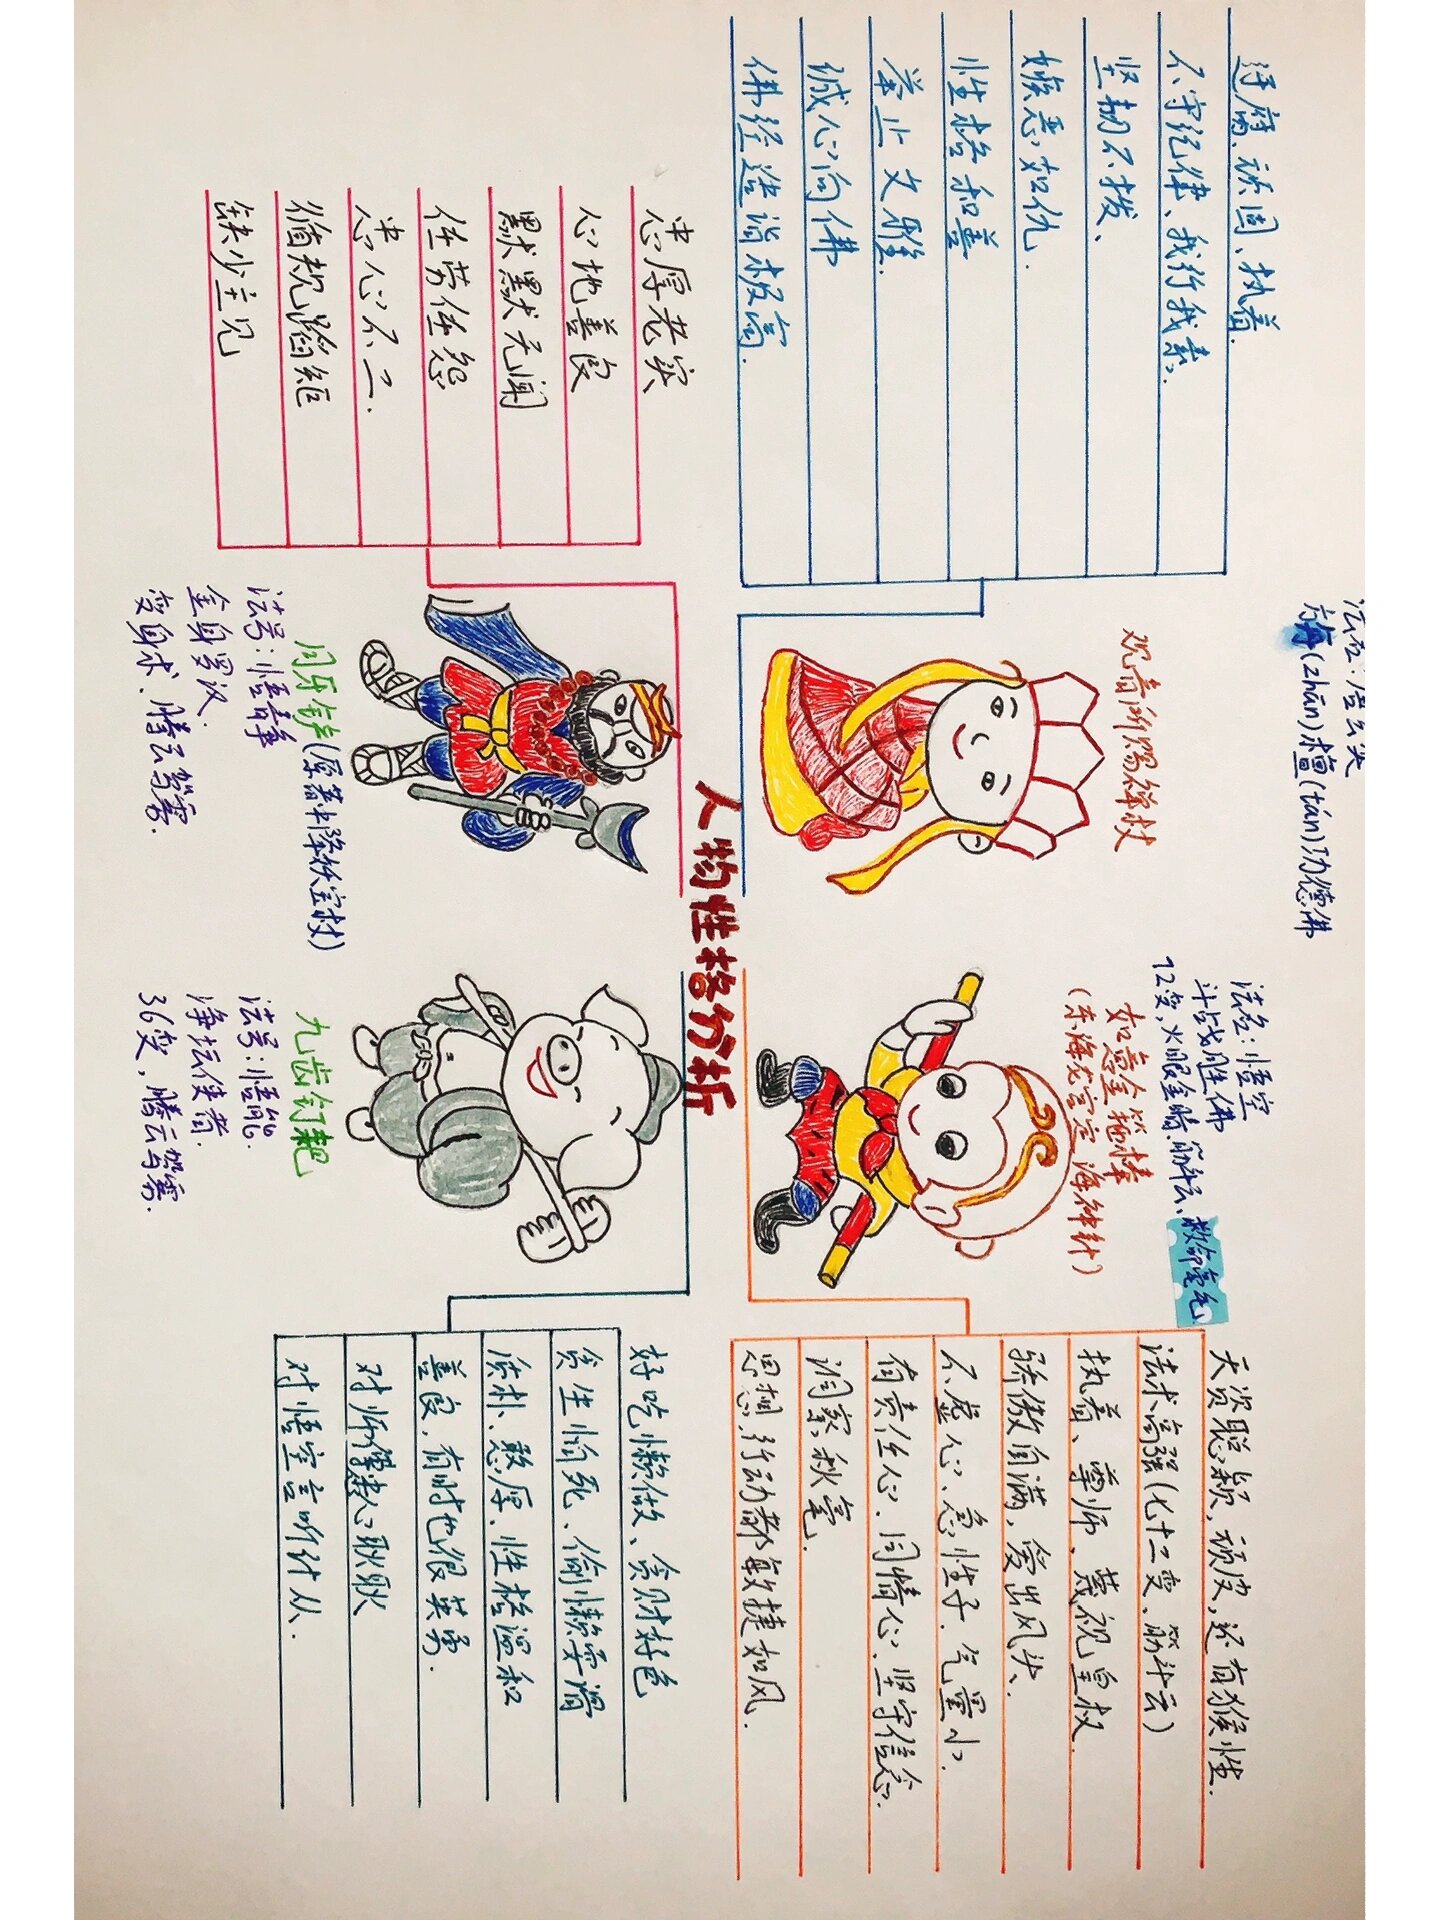 人物性格分析
法名：
旃(zhān)檀(tán)功德佛
观音所赐禅杖
迂腐、顽固、执着.
不守纪律、我行我素.
坚韧不拔、
嫉恶如仇.
性格和善
举止文雅.
诚心向佛
佛经造诣极高.
法名：悟空
斗战胜佛
72变，火眼金睛.筋斗云、救命毫毛
如意金箍棒
(东海龙宫定海神针)
天资聪颖，顽皮，还有猴性.
法术高强(七十二变、筋斗云)
执着、尊师、蔑视皇权.
骄傲自满，爱出风头.
不虚心、急性子.气量小.
有责任心、同情心、坚守信念.
洞察秋毫.
思想、行动都敏捷如风.
忠厚老实
心地善良
默默无闻
任劳任怨
忠心不二.
循规蹈矩
缺少主见
月牙铲(原著中降妖宝杖)
法号：悟静
金身罗汉.
变身术、腾云驾雾.
九齿钉耙
法号：悟能.
净坛使者.
36变，腾云驾雾.
好吃懒做、贪财好色
贪生怕死、偷懒耍滑
质朴、憨厚、性格温和
善良.有时也很英勇.
对师傅忠心耿耿
对悟空言听计从.